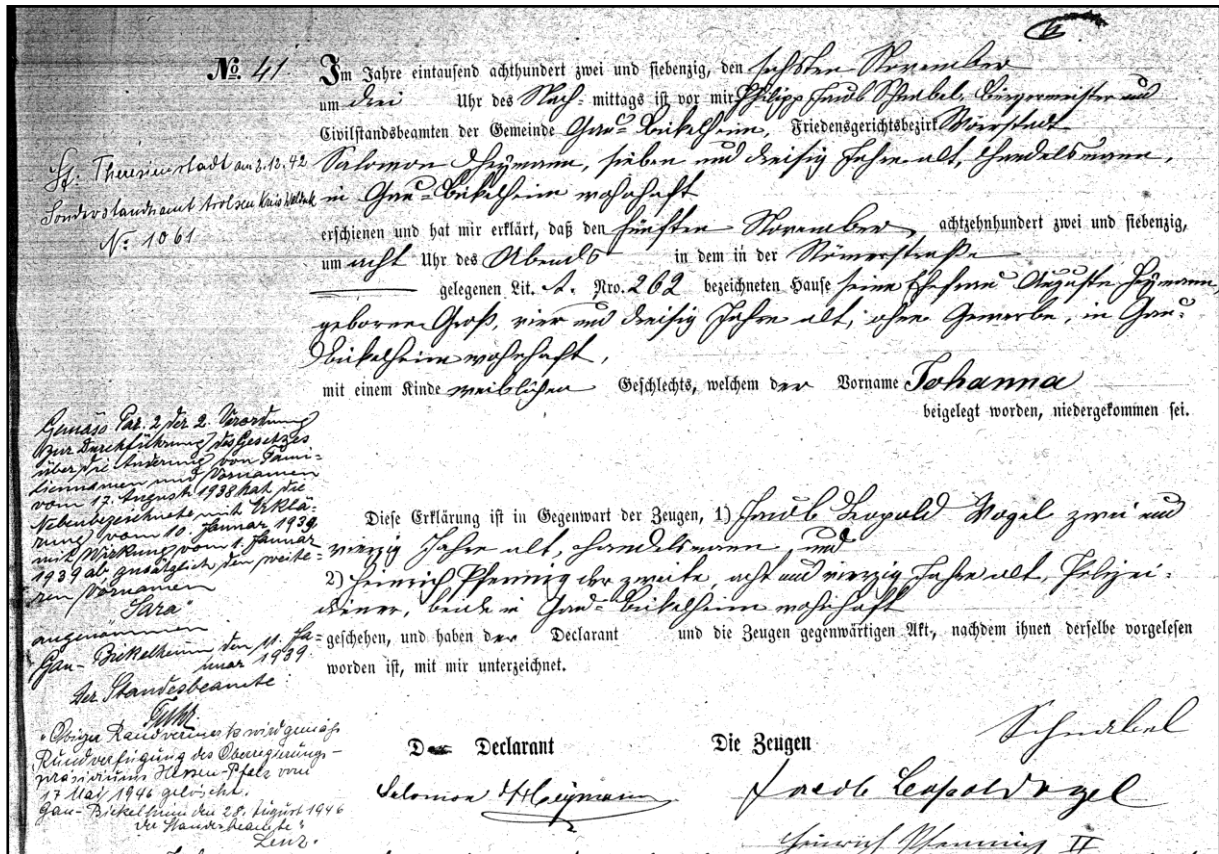 No. 41
Im Jahre eintausend achthundert zwei und siebenzig, den sechsten November
um drei Uhr des Nach-mittags ist vor mir Philipp Jacob Schnabel, Bürgermeister und
Civilstandsbeamten der Gemeinde Gau-Bickelheim, Friedensgerichtsbezirk Wörrstadt
Salomon Heymann, sieben und dreisig Jahre alt, Handelsmann,
in Gau-Bickelheim wohnhaft
erschienen und hat mir erklärt, daß den fünften November, achtzehnhundert zwei und siebenzig,
um acht Uhr des Abends in dem in der Römerstraße
gelegenen Lit. A. Nro. 262 bezeichneten Hause seine Ehefrau Auguste Heymann,
geborne Groß, vier und dreisig Jahre alt, ohne Gewerbe, in Gau-
Bickelheim wohnhaft,
mit einem Kinde weiblichen Geschlechts, welchem der Vorname Johanna
beigelegt worden, niedergekommen sei.
Diese Erklärung ist in Gegenwart der Zeugen, 1) Jacob Leopold Vogel zwei und
vierzig Jahre alt, Handelsmann, und
2) Heinrich Pfennig der zweite, acht und vierzig Jahre alt, Polizei-
diener, beide in Gau-Bickelheim wohnhaft
geschehen, und haben der Declarant und die Zeugen gegenwärtigen Akt, nachdem ihnen derselbe vorgelesen
worden ist, mit mir unterzeichnet.
Der Declarant Die Zeugen
Schnabel
Salomon Heymann
Jacob Leopold Vogel
Heinrich Pfennig II
Theresienstadt am 2.12.42
Sonderstandesamt Arolsen Kreis Waldeck
Nr. 1061
Gemäss Par. 2 der 2. Verordnung
zur Durchführung des Gesetzes
über die Änderung von Fami-
liennamen und Vornamen
vom 17. August 1938 hat die
Nebenbezeichnete mit Erklä-
rung vom 10. Januar 1939,
mit Wirkung vom 1. Januar
1939 ab, zusätzlich den weite-
ren Vornamen
"Sara"
angenommen.
Gau-Bickelheim, den 11. Ja-
nuar 1939.
Der Standesbeamte
"Obiger Randvermerk wird gemäss
Rundverfügung des Oberregierungs-
präsidiums Hessen-Pfalz vom
17 Mai 1946 gelöscht.
Gau-Bickelheim den 28. August 1946
Der Standesbeamte"
Lenz.